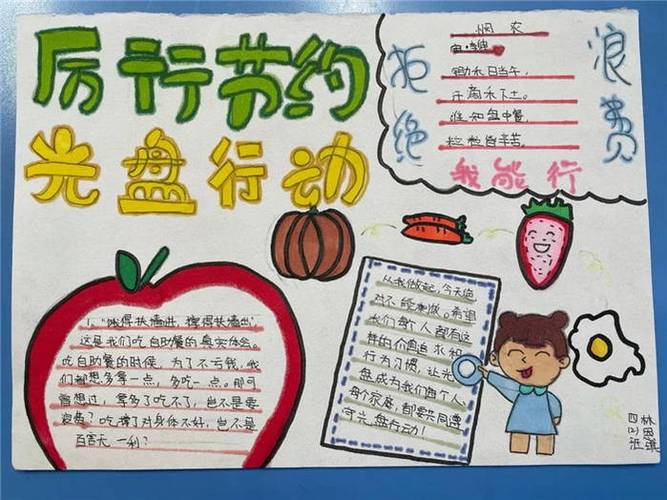 厉行节约
光盘行动
拒绝
浪费
悯农
锄禾日当午,
汗滴禾下土。
谁知盘中餐,
粒粒皆辛苦。
我能行
1、"饿得扶墙进,撑得扶墙出"
这是我们吃自助餐的真实体会。
吃自助餐的时候,为了不亏钱,我
们都想多拿一点,多吃一点。那可
曾想过,拿多了吃不了,岂不是要
浪费?吃撑了对身体不好,岂不是
百害无一利?
从我做起,今天绝
对不能剩饭。希望
我们每个人都有这
样的价值追求和
行为习惯,让光
盘成为我们每个人、
每个家庭,都要共同遵
守光盘行动!
四(2)班
林思琪